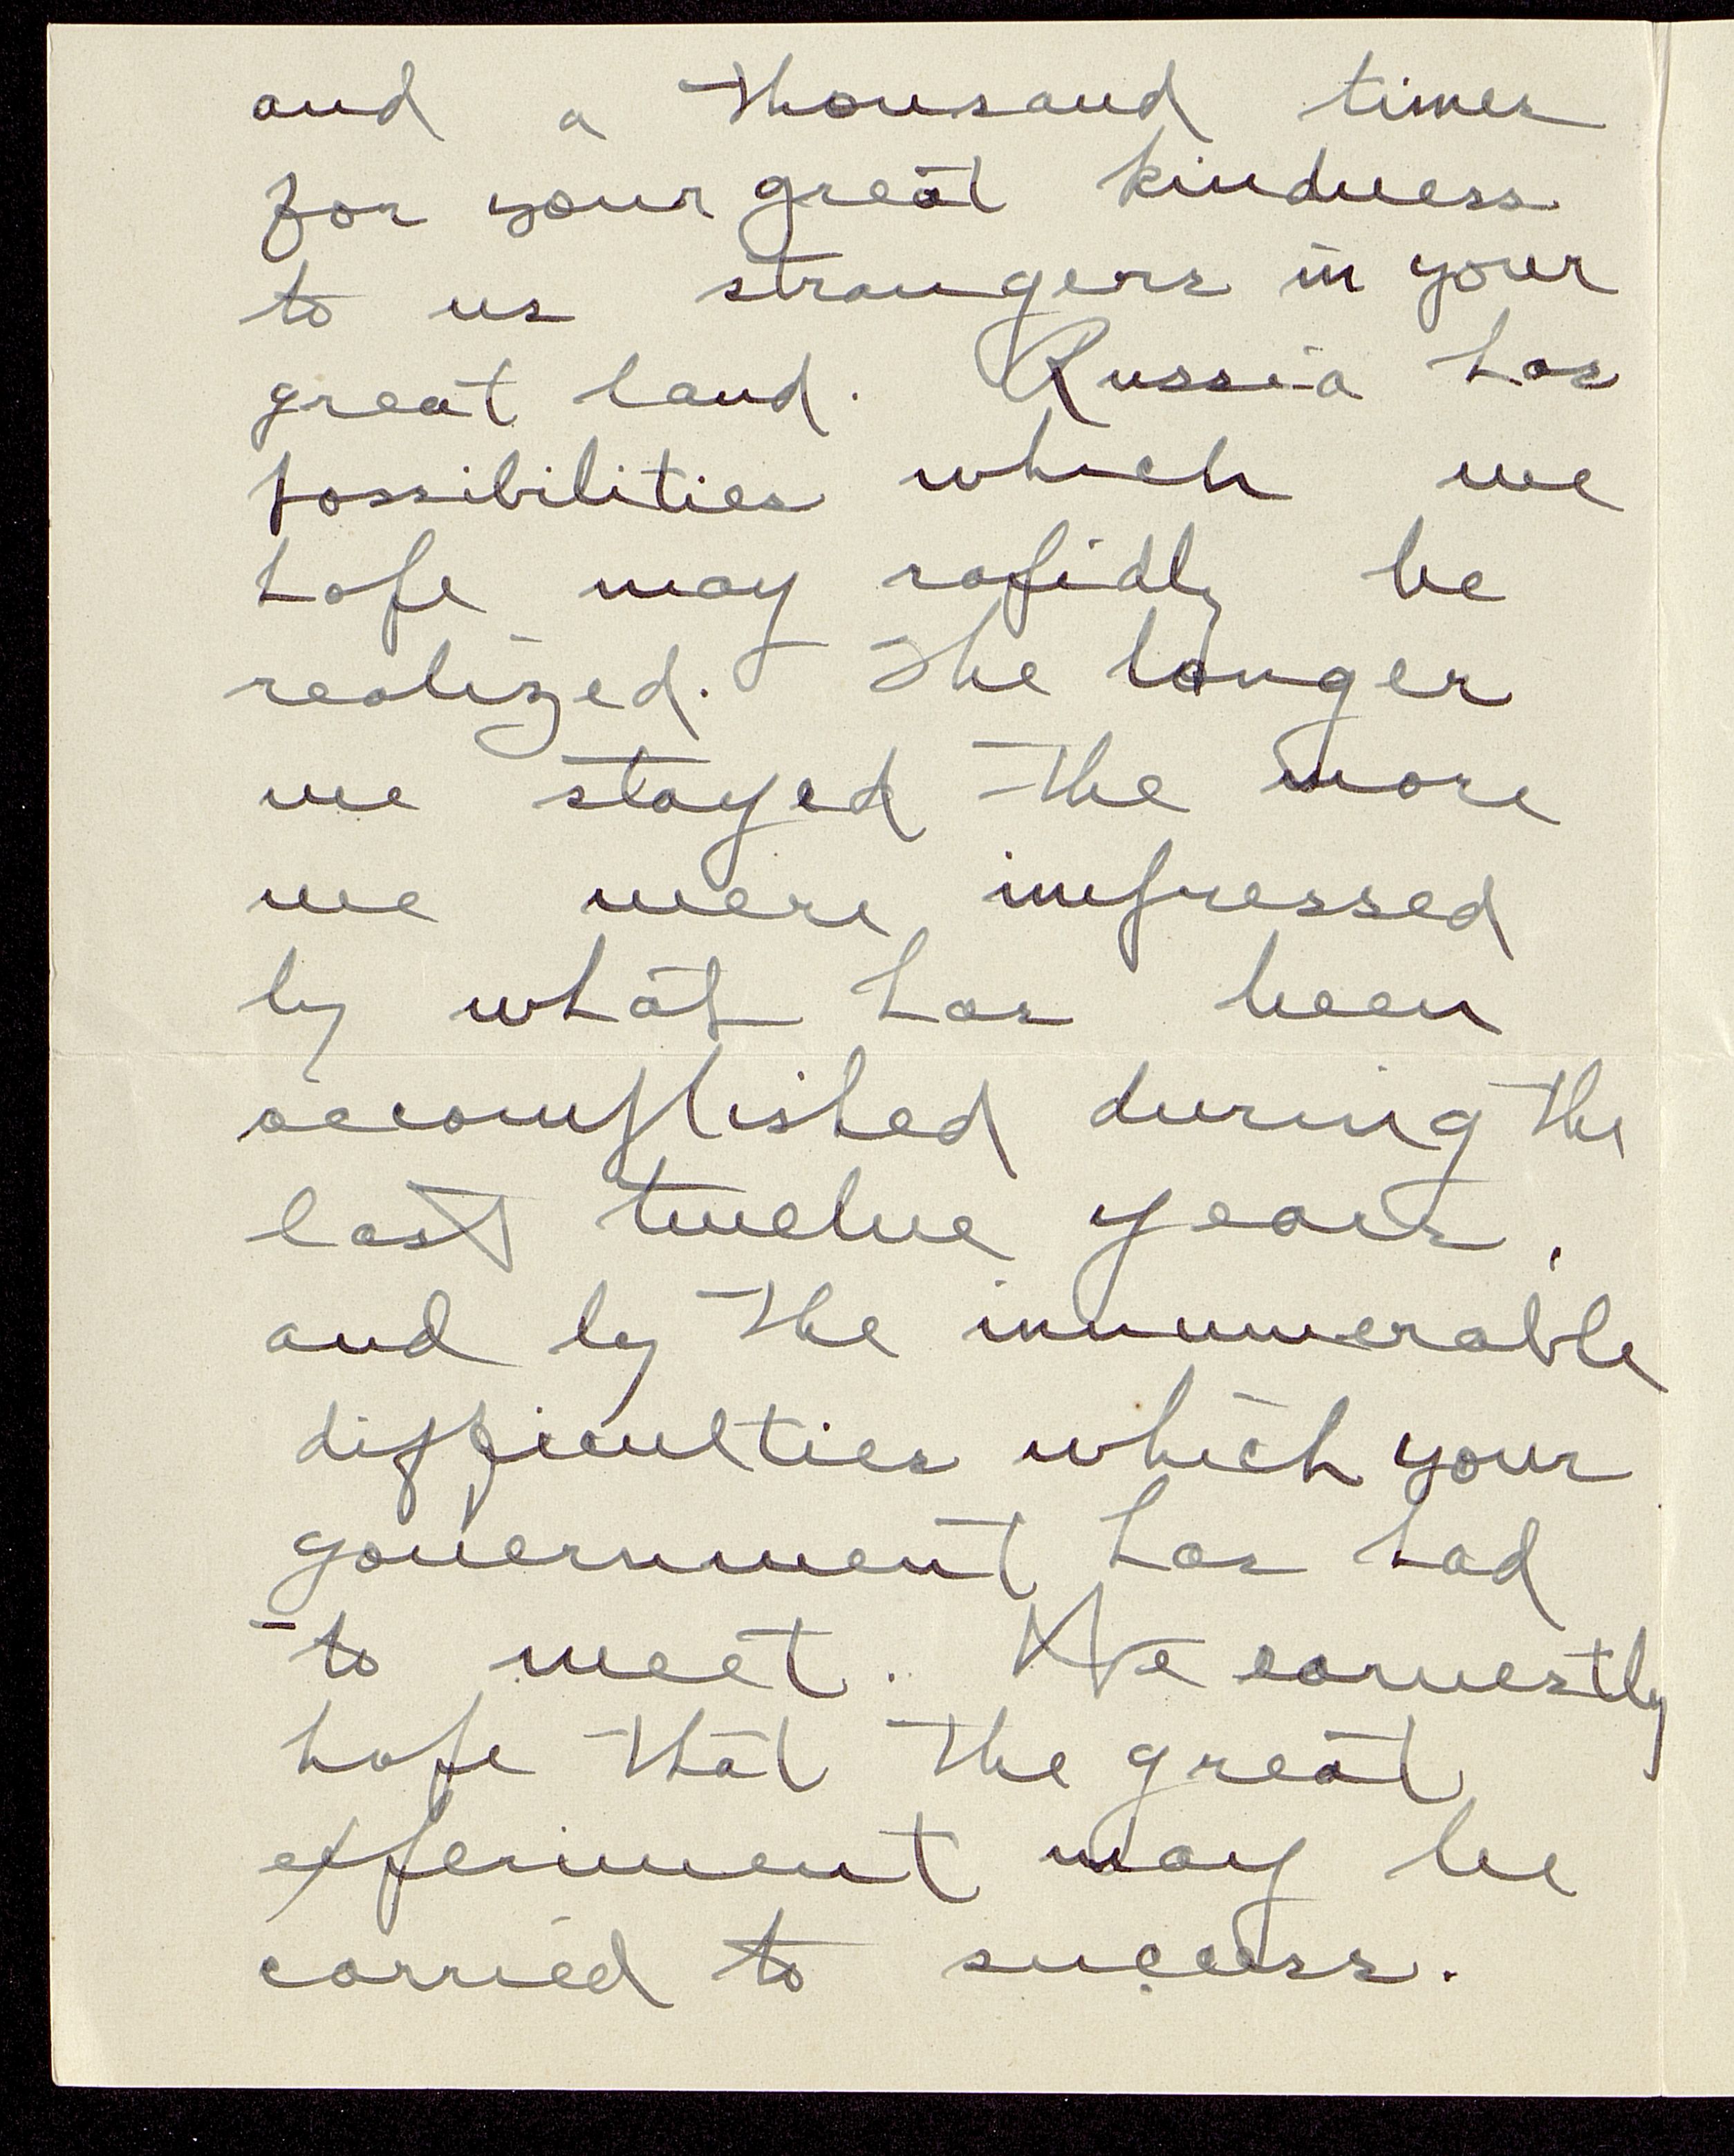 and a thousand times
for your great kindness
to us strangers in your
great land. Russia has
possibilities which we
hope may rapidly be
realized. The longer
we stayed the more
we were impressed
by what has been
accomplished during the
last twelve years,
and by the innumerable
difficulties which your
government has had
to meet. We earnestly
hope that the great
experiment may be
carried to success.